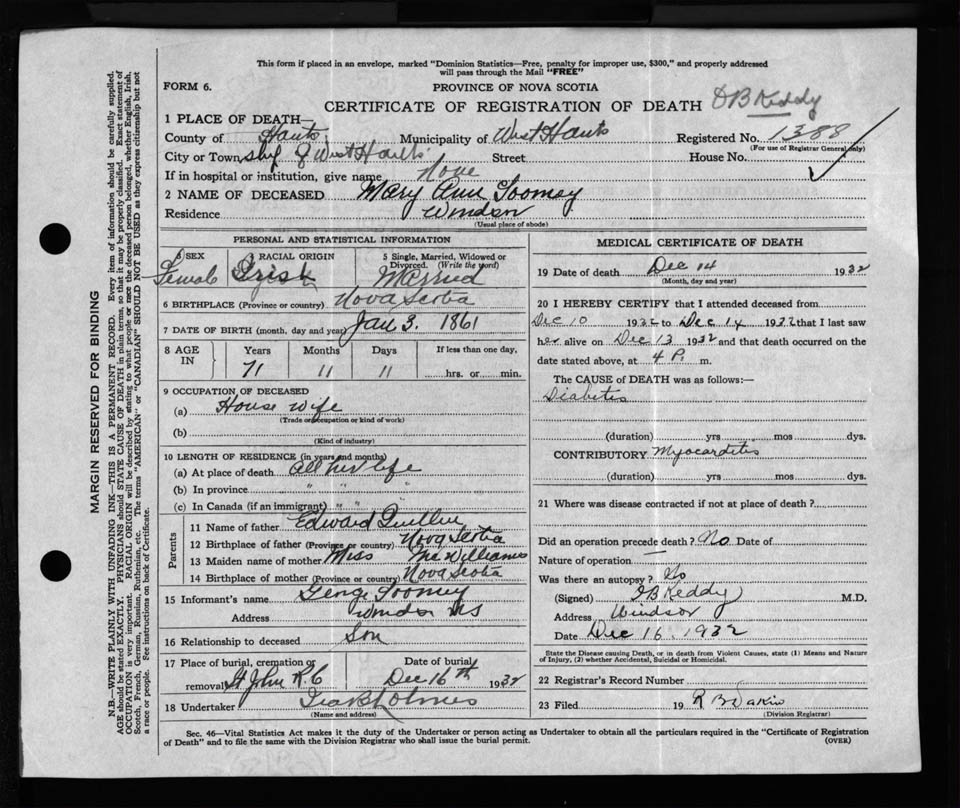 This form if placed in an envelope, marked "Dominion Statistics—Free, penalty for improper use, $300," and properly addressed
will pass through the Mail "FREE"
FORM 6.
PROVINCE OF NOVA SCOTIA
CERTIFICATE OF REGISTRATION OF DEATH DB Keddy
1 PLACE OF DEATH—
County of Hants Municipality of West Hants Registered No. 1388
(For use of Registrar General only)
City or Town of West Hants Street House No.
If in hospital or institution, give name None
2 NAME OF DECEASED Mary Ann Toomey
Residence Windsor
(Usual place of abode)
PERSONAL AND STATISTICAL INFORMATION
3 SEX RACIAL ORIGIN 5 Single, Married, Widowed or
Divorced. (Write the word)
Female Irish Married
6 BIRTHPLACE (Province or country) Nova Scotia
7 DATE OF BIRTH (month, day and year) Jan 3. 1861
8 AGE IN Years Months Days If less than one day,
71 11 11 hrs. or min.
9 OCCUPATION OF DECEASED
(a) House wife
(Trade or occupation or kind of work)
(b)
(Kind of industry)
10 LENGTH OF RESIDENCE (in years and months)
(a) At place of death all her life
(b) In province " " "
(c) In Canada (if an immigrant) " " "
Parents
11 Name of father Edward
12 Birthplace of father (Province or country) Nova Scotia
13 Maiden name of mother Miss McWilliams
14 Birthplace of mother (Province or country) Nova Scotia
15 Informant's name Toomey
Address Windsor NS
16 Relationship to deceased Son
17 Place of burial, cremation or Date of burial
removal St John R.C Dec 16th 1932
18 Undertaker Holmes
(Name and address)
MEDICAL CERTIFICATE OF DEATH
19 Date of death Dec 14 1932
(Month, day and year)
20 I HEREBY CERTIFY that I attended deceased from
Dec 10 1932 to Dec 14 1932 that I last saw
her alive on Dec 13 1932 and that death occurred on the
date stated above, at 4 P. m.
The CAUSE OF DEATH was as follows:—
Diabetis
(duration) yrs mos dys.
CONTRIBUTORY Myocarditis
(duration) yrs. mos. dys.
21 Where was disease contracted if not at place of death?
Did an operation precede death? No Date of
Nature of operation
Was there an autopsy? No
(Signed) DB Keddy M.D.
Address Windsor
Date Dec 16, 1932
State the Disease causing Death, or in death from Violent Causes, state (1) Means and Nature
of Injury, (2) whether Accidental, Suicidal or Homicidal.
22 Registrar's Record Number
23 Filed 19 R B Dakin
(Division Registrar)
Sec. 46—Vital Statistics Act makes it duty of the Undertaker or person acting as Undertaker to obtain all the particulars required in the "Certificate of Registration
of Death" and to file the same with the Division Registrar who shall issue the burial permit. (OVER)
MARGIN RESERVED FOR BINDING
N.B.—WRITE PLAINLY WITH UNFADING INK—THIS IS A PERMANENT RECORD. Every item of information should be carefully supplied.
AGE should be stated EXACTLY. PHYSICIANS should STATE CAUSE OF DEATH in plain terms, so that it may be properly classified. Exact statement of
OCCUPATION is very important. RACIAL ORIGIN will be described by stating to what people or race the deceased person belonged, whether English, Irish,
Scotch, French, German, Russian, Ruthenian, etc. The terms "AMERICAN" or "CANADIAN" SHOULD NOT BE USED as they express citizenship but not
a race or people. Fee instructions on back of Certificate.